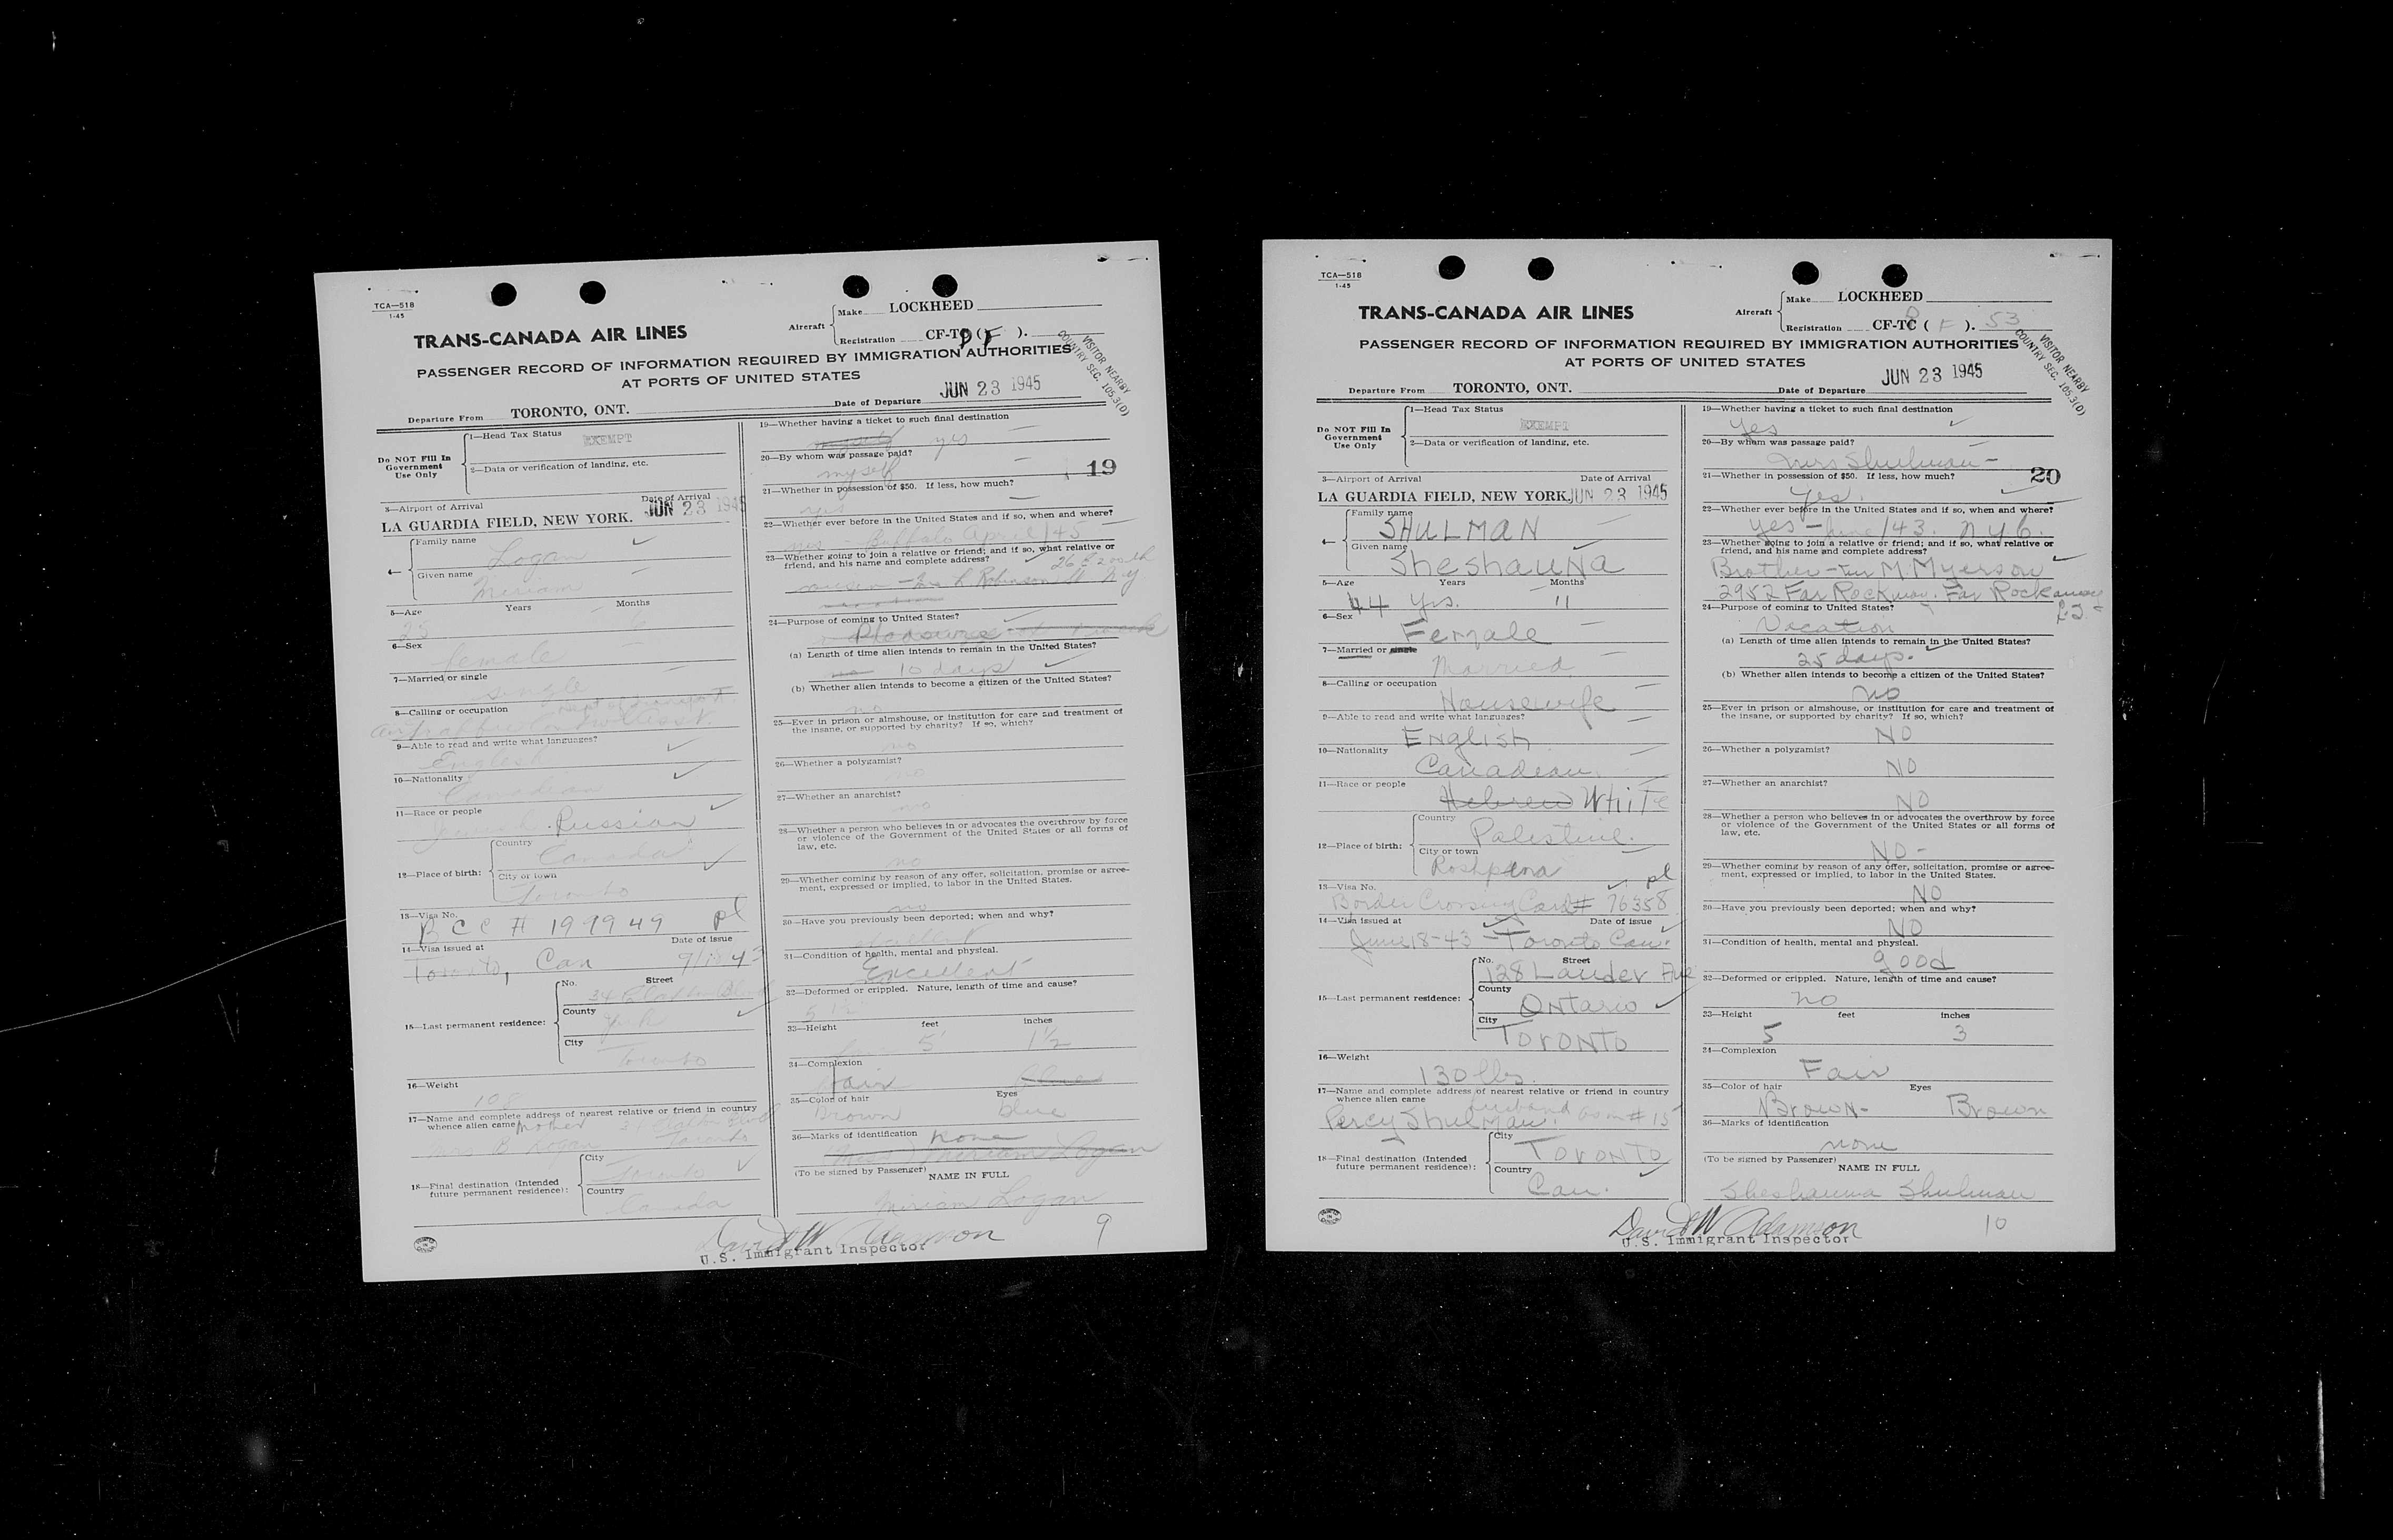 TCA—518
1-45
TRANS-CANADA AIR LINES
Aircraft
Make LOCKHEED
Registration CF-TC ( F ).
PASSENGER RECORD OF INFORMATION REQUIRED BY IMMIGRATION AUTHORITIES
AT PORTS OF UNITED STATES
VISITOR NEARBY
COUNTRY SEC. 105.3(D)
Departure From TORONTO, ONT. Date of Departure JUN 23 1945
Do NOT Fill In
Government
Use Only
1—Head Tax Status EXEMPT
2—Data or verification of landing, etc.
3—Airport of Arrival Date of Arrival
LA GUARDIA FIELD, NEW YORK. JUN 23 1945
4—
Family name
Logan
Given name
Miriam
5—Age Years Months
6—Sex
female
7—Married or single
single
8—Calling or occupation
9—Able to read and write what languages?
English
10—Nationality
Canadian
11—Race or people
Russian
12—Place of birth:
Country
Canada
City or town
Toronto
13—Visa No.
B C C # 197949 pl
14—Visa issued at Date of issue
Toronto, Can
15—Last permanent residence:
No. Street
County
York
City
Toronto
16—Weight
108
17—Name and complete address of nearest relative or friend in country
whence alien came mother
Mrs B Logan Toronto
18—Final destination (Intended
future permanent residence):
City
Toronto
Country
Canada
19—Whether having a ticket to such final destination
yes
20—By whom was passage paid?
myself
19
21—Whether in possession of $50. If less, how much?
yes
22—Whether ever before in the United States and if so, when and where?
Buffalo April/45
23—Whether going to join a relative or friend; and if so, what relative or
friend, and his name and complete address?
cousin Robinson N.Y
24—Purpose of coming to United States?
Pleasure
(a) Length of time alien intends to remain in the United States?
10 days
(b) Whether alien intends to become a citizen of the United States?
no
25—Ever in prison or almshouse, or institution for care and treatment of
the insane, or supported by charity? If so, which?
no
26—Whether a polygamist?
no
27—Whether an anarchist?
no
28—Whether a person who believes in or advocates the overthrow by force
or violence of the Government of the United States or all forms of
law, etc.
no
29—Whether coming by reason of any offer, solicitation, promise or agree-
ment, expressed or implied, to labor in the United States.
no
30—Have you previously been deported; when and why?
31—Condition of health, mental and physical.
Excellent
32—Deformed or crippled. Nature, length of time and cause?
33—Height feet inches
5' 1½
34—Complexion
fair
35—Color of hair Eyes
Brown blue
36—Marks of identification none
Miss Miriam Logan
(To be signed by Passenger)
NAME IN FULL
Miriam Logan
David W Adamson
U.S. Immigrant Inspector
9
TCA—518
1-45
TRANS-CANADA AIR LINES
Aircraft
Make LOCKHEED
Registration CF-TC ( F ). 53
PASSENGER RECORD OF INFORMATION REQUIRED BY IMMIGRATION AUTHORITIES
AT PORTS OF UNITED STATES
VISITOR NEARBY
COUNTRY SEC. 105.3(D)
Departure From TORONTO, ONT. Date of Departure JUN 23 1945
Do NOT Fill In
Government
Use Only
1—Head Tax Status
EXEMPT
2—Data or verification of landing, etc.
3—Airport of Arrival Date of Arrival
LA GUARDIA FIELD, NEW YORK. JUN 23 1945
4—
Family name
SHULMAN
Given name
SheshauNa
5—Age Years Months
44 Yrs. 11
6—Sex
Female
7—Married or single
Married
8—Calling or occupation
Housewife
9—Able to read and write what languages?
English
10—Nationality
Canadian
11—Race or people
Hebrew White
12—Place of birth:
Country
Palestine.
City or town
Roshpina
13—Visa No. pl
Border Crossing Card # 76358
14—Visa issued at Date of issue
June 18-43 - Toronto Can.
15—Last permanent residence:
No. Street
128 Lauder Ave
County
Ontario
City
Toronto
16—Weight
130 lbs.
17—Name and complete address of nearest relative or friend in country
whence alien came husband
Percy Shulman.
18—Final destination (Intended
future permanent residence):
City
Toronto
Country
Can.
19—Whether having a ticket to such final destination
Yes
20—By whom was passage paid?
Mrs Shulman -
20
21—Whether in possession of $50. If less, how much?
Yes.
22—Whether ever before in the United States and if so, when and where?
yes - June/43. N Y C.
23—Whether going to join a relative or friend; and if so, what relative or
friend, and his name and complete address?
Brother - M. Myerson
2952 Far Rockway. Far Rockaway
L.I.
24—Purpose of coming to United States?
Vacation
(a) Length of time alien intends to remain in the United States?
25 days.
(b) Whether alien intends to become a citizen of the United States?
no
25—Ever in prison or almshouse, or institution for care and treatment of
the insane, or supported by charity? If so, which?
NO
26—Whether a polygamist?
NO
27—Whether an anarchist?
NO
28—Whether a person who believes in or advocates the overthrow by force
or violence of the Government of the United States or all forms of
law, etc.
NO -
29—Whether coming by reason of any offer, solicitation, promise or agree-
ment, expressed or implied, to labor in the United States.
NO
30—Have you previously been deported; when and why?
NO
31—Condition of health, mental and physical.
good
32—Deformed or crippled. Nature, length of time and cause?
no
33—Height feet inches
5 3
34—Complexion
Fair
35—Color of hair Eyes
Brown- Brown
36—Marks of identification
none
(To be signed by Passenger)
NAME IN FULL
Sheshauna Shulman
David W Adamson
U.S. Immigrant Inspector
10